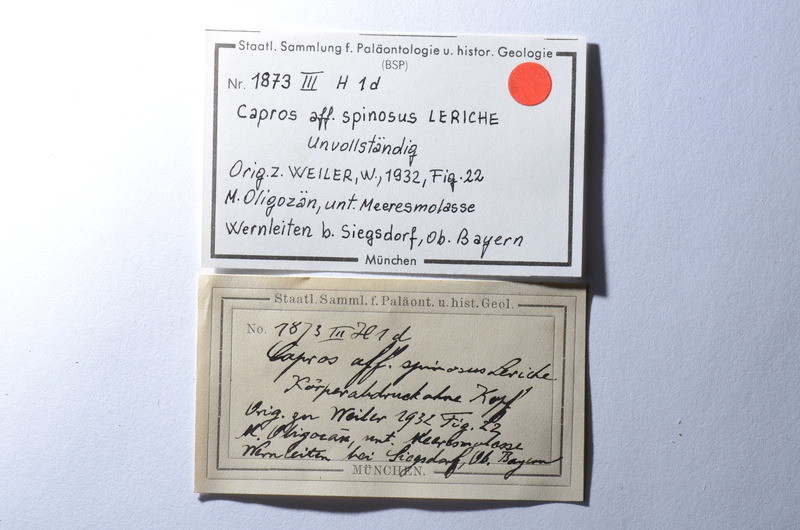 Staatl. Sammlung f. Paläontologie u. histor. Geologie
(BSP)
Nr. 1873 III H 1d
Capros aff. spinosus LERICHE
Unvollständig
Orig. z. WEILER, W., 1932, Fig. 22
M. Oligozän, unt. Meeresmolasse
Wernleiten b. Siegsdorf, Ob. Bayern
München
Staatl. Samml. f. Paläont. u. hist. Geol.
No. 1873 III H 1 d
Capros aff. spinosus Leriche
Körperabdruck ohne Kopf
Orig. zu Weiler 1932 Fig. 22
M. Oligozän, unt. Meeresmolasse
Wernleiten bei Siegsdorf, Ob. Bayern
MÜNCHEN.